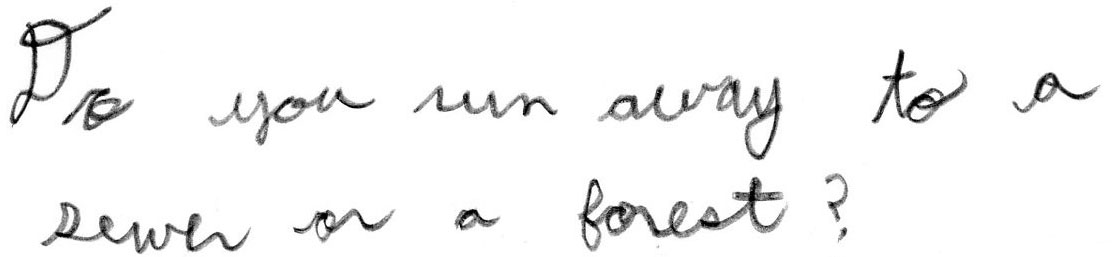 Do you run away to a
sewer or a forest?